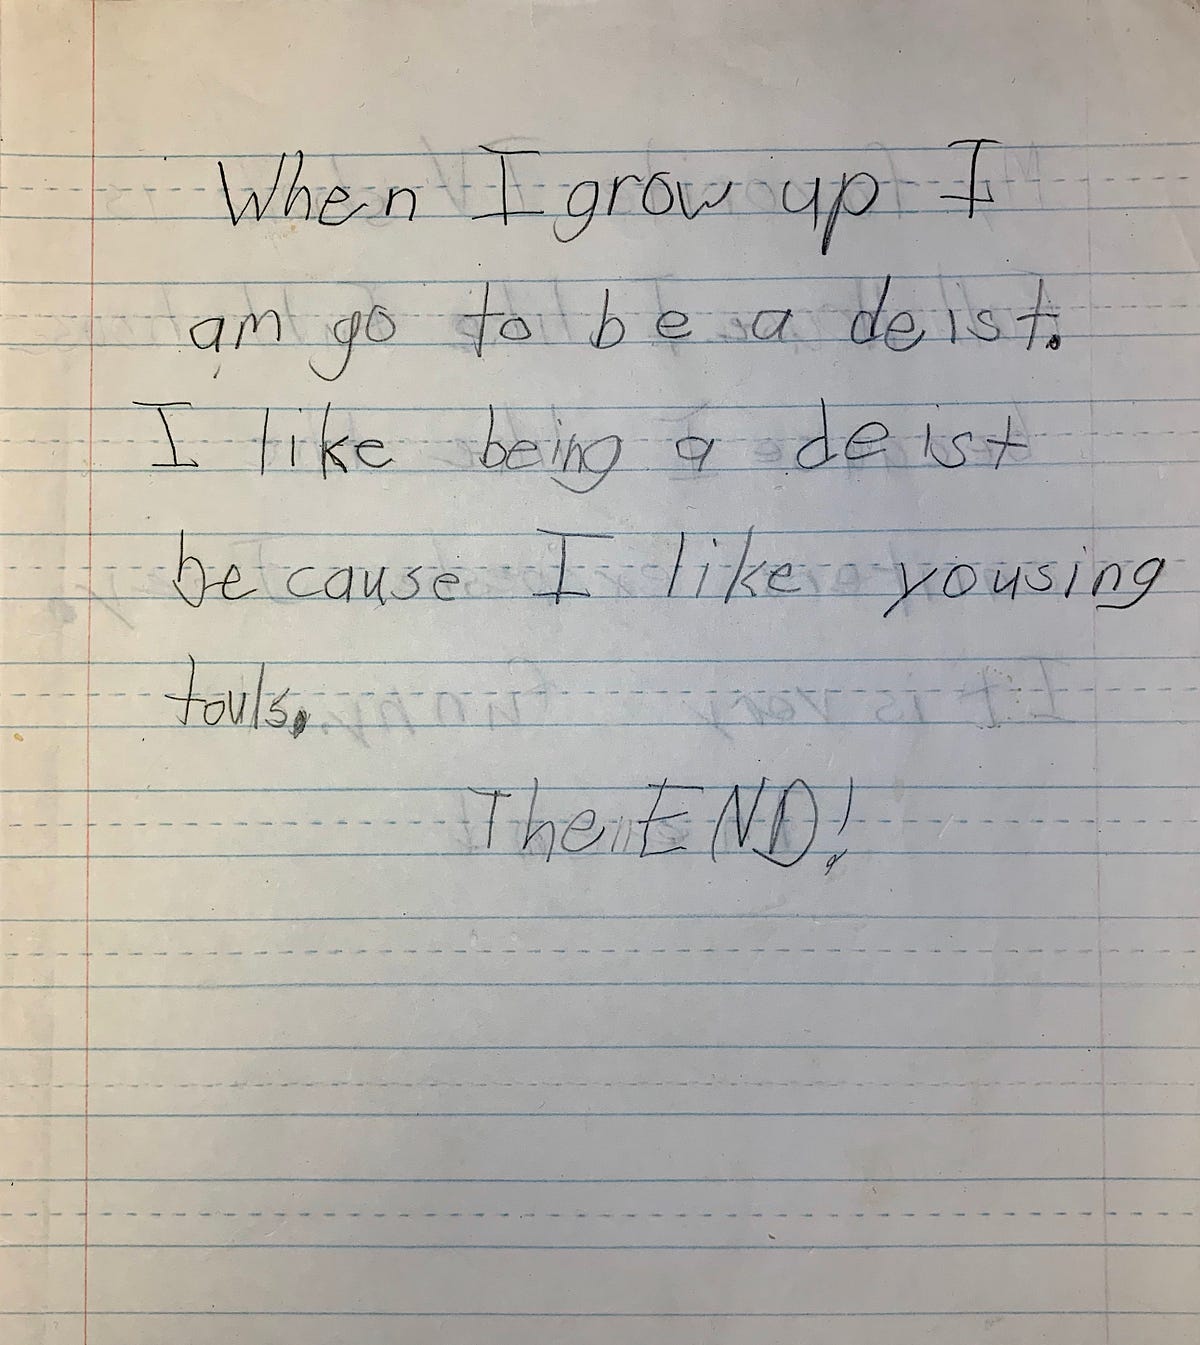 When I grow up I
am go to be a deist.
I like being a deist
because I like yousing
touls.
The END!